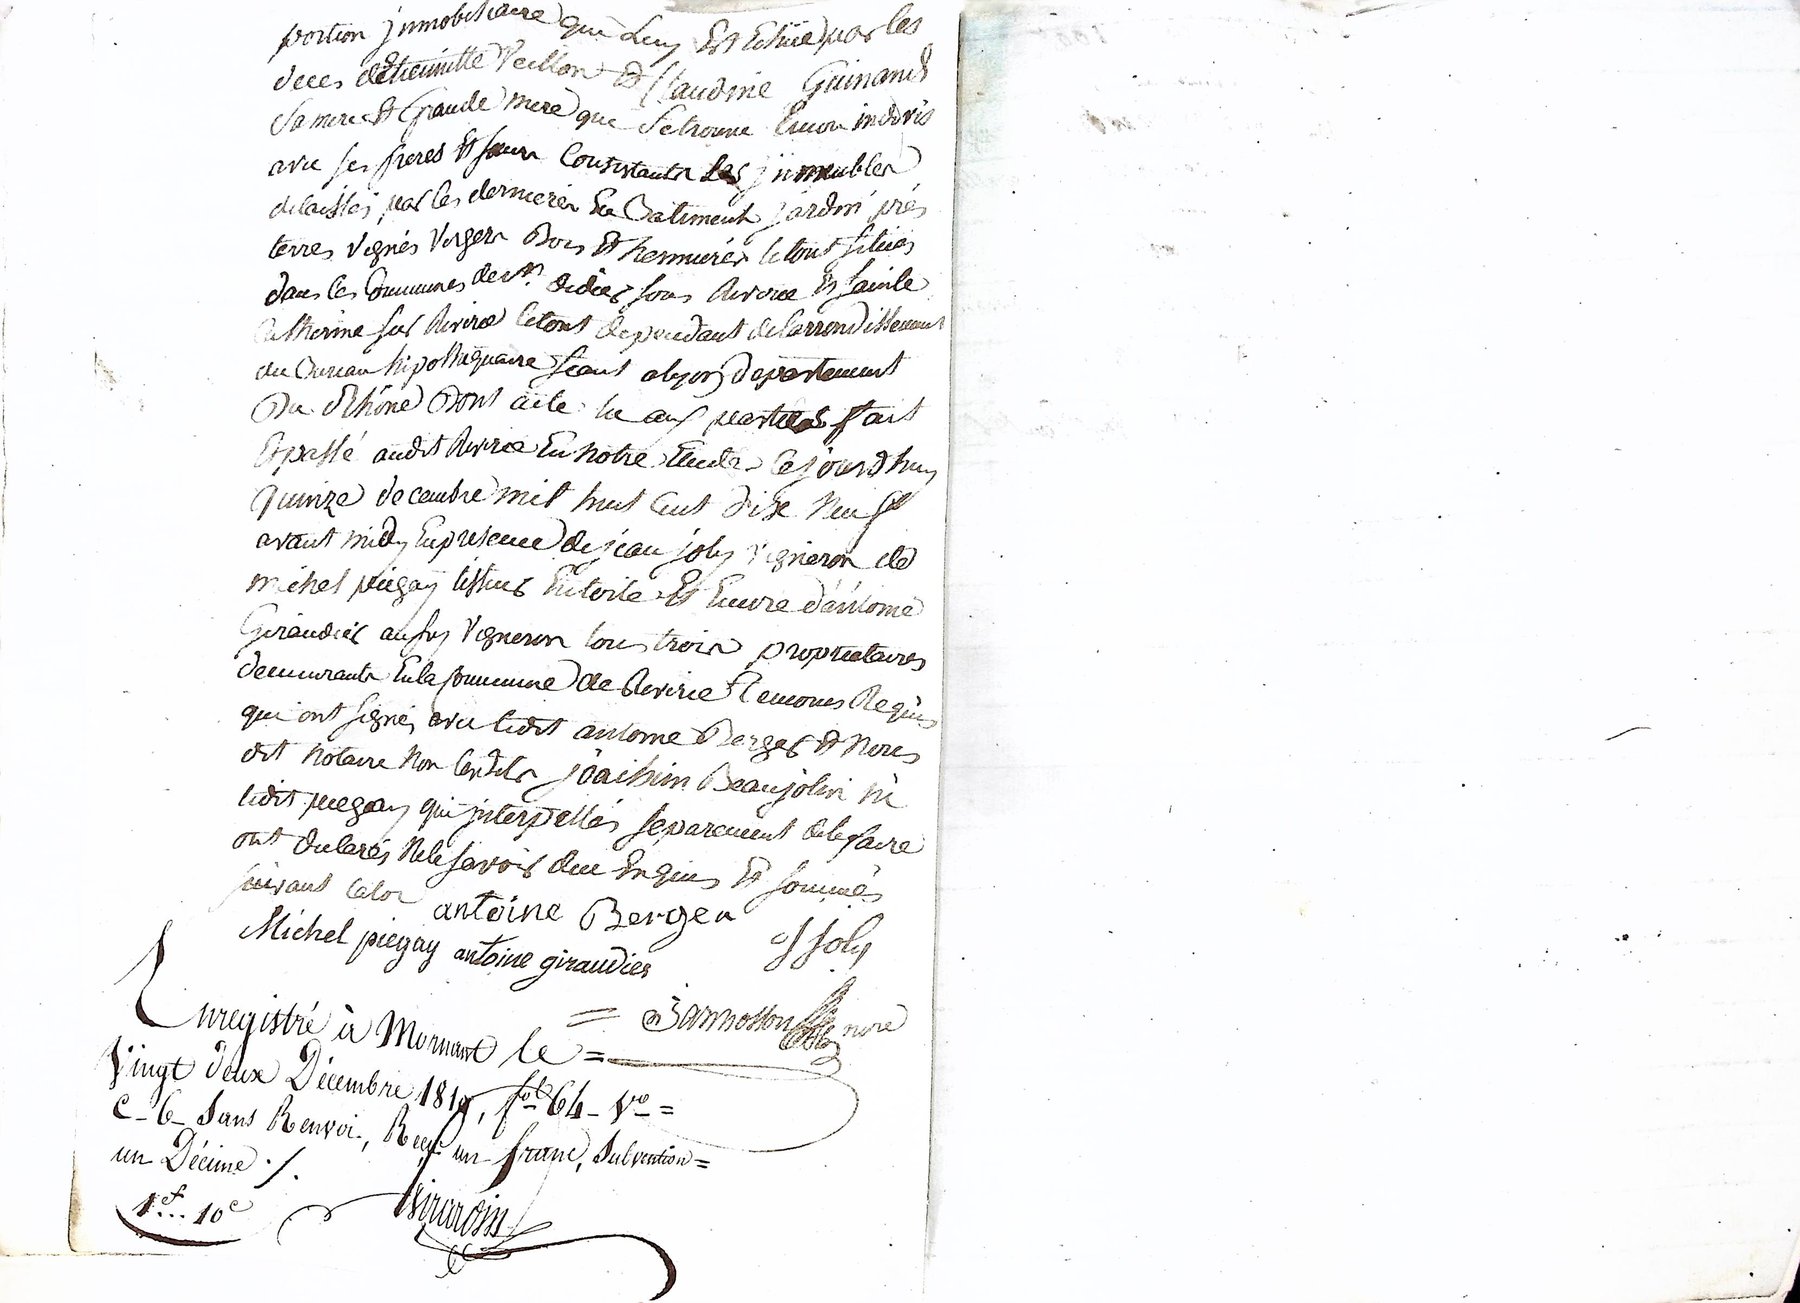 portion jmmobiliaire qui Luy Est Echüe par les
deces detiennette Veillon Et Claudine Guinand
Sa mere Et Grande mere que Se trouve Encor indivis
avec ses freres Et sœur Consistants Les jmmeubles
delaissés par les dernieres En Batiments jardin prés
terres vignes vergers Bois Et hermures le tout situés
dans les Communes de st. didier sous Riverie Et sainte
Catherine sur Riverie le tout dependant de larrondissement
du Bureau hipothequaire seant alyon departement
Du Rhône Dont acte lu aux parties fait
Et passé audit Riverie En notre Etude Cejourdhuy
quinze decembre mil huit Cent dix Neuf
avant midy En presence de jean joly vigneron de
michel piegay tisseur En toile Et Encore d'antoine
Giraudier aussy vigneron tous trois proprietaires
demeurants En la Commune de Riverie temoins Requis
qui ont signés avec ledit antoine Berger Et Nous
dit Notaire Non lesdits joachim Beaujolin ni
ledit piegay qui jnterpellés separement de le faire
ont declarés Ne le savoir dece Enquis Et sommés
suivant la loi
antoine Berger
Michel piegay antoine giraudier J Joly
= Jannosson nore
Enregistré à Mornant le =
Vingt deux Décembre 1819, fol 64 - Vo =
C - 6 - Sans Renvoi, Reçu un franc, Subvention =
un Décime ./.
1f... 10c
Girardin